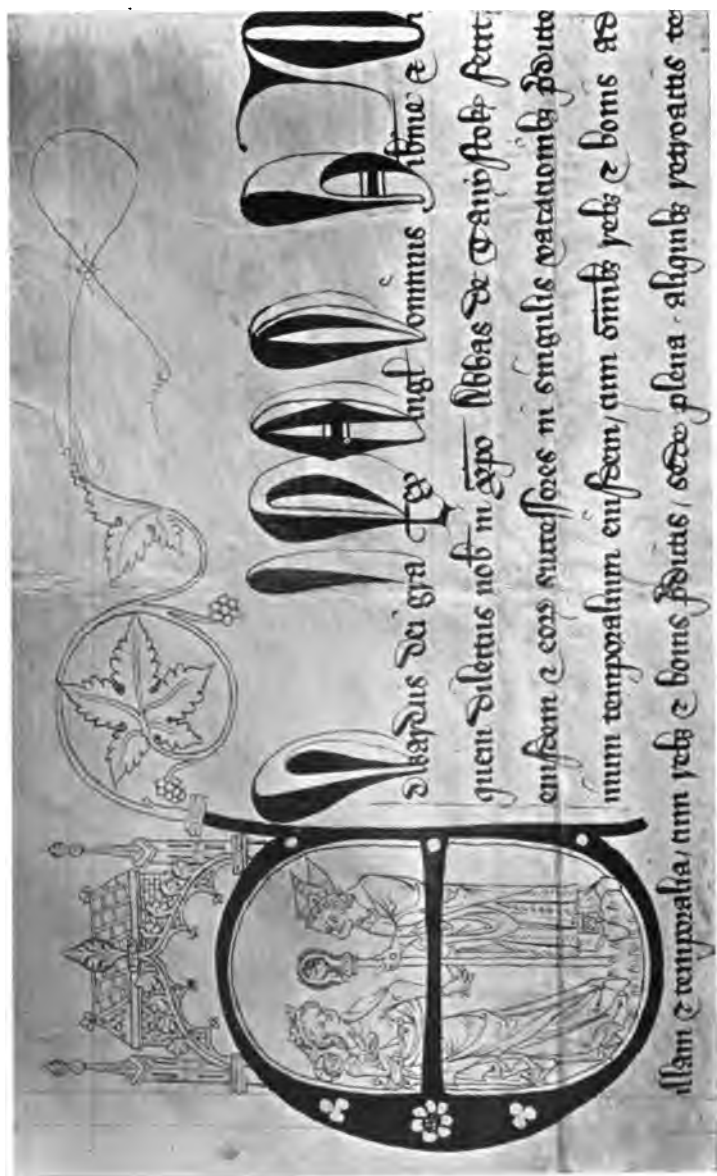 Edwardus dei gra Rex Angl dominus Hibnie ⁊
quem dilectus nob in xpo Abbas de Tavistok fecit
eiusdem ⁊ eorꝝ successores in singulis vacacionibꝫ pdicte
temporalium eiusdem, cum omibꝫ rebꝫ ⁊ bonis ad
illam ⁊ temporalia, cum rebꝫ ⁊ bonis pdictis, sede plena . aliqibꝫ retroactis